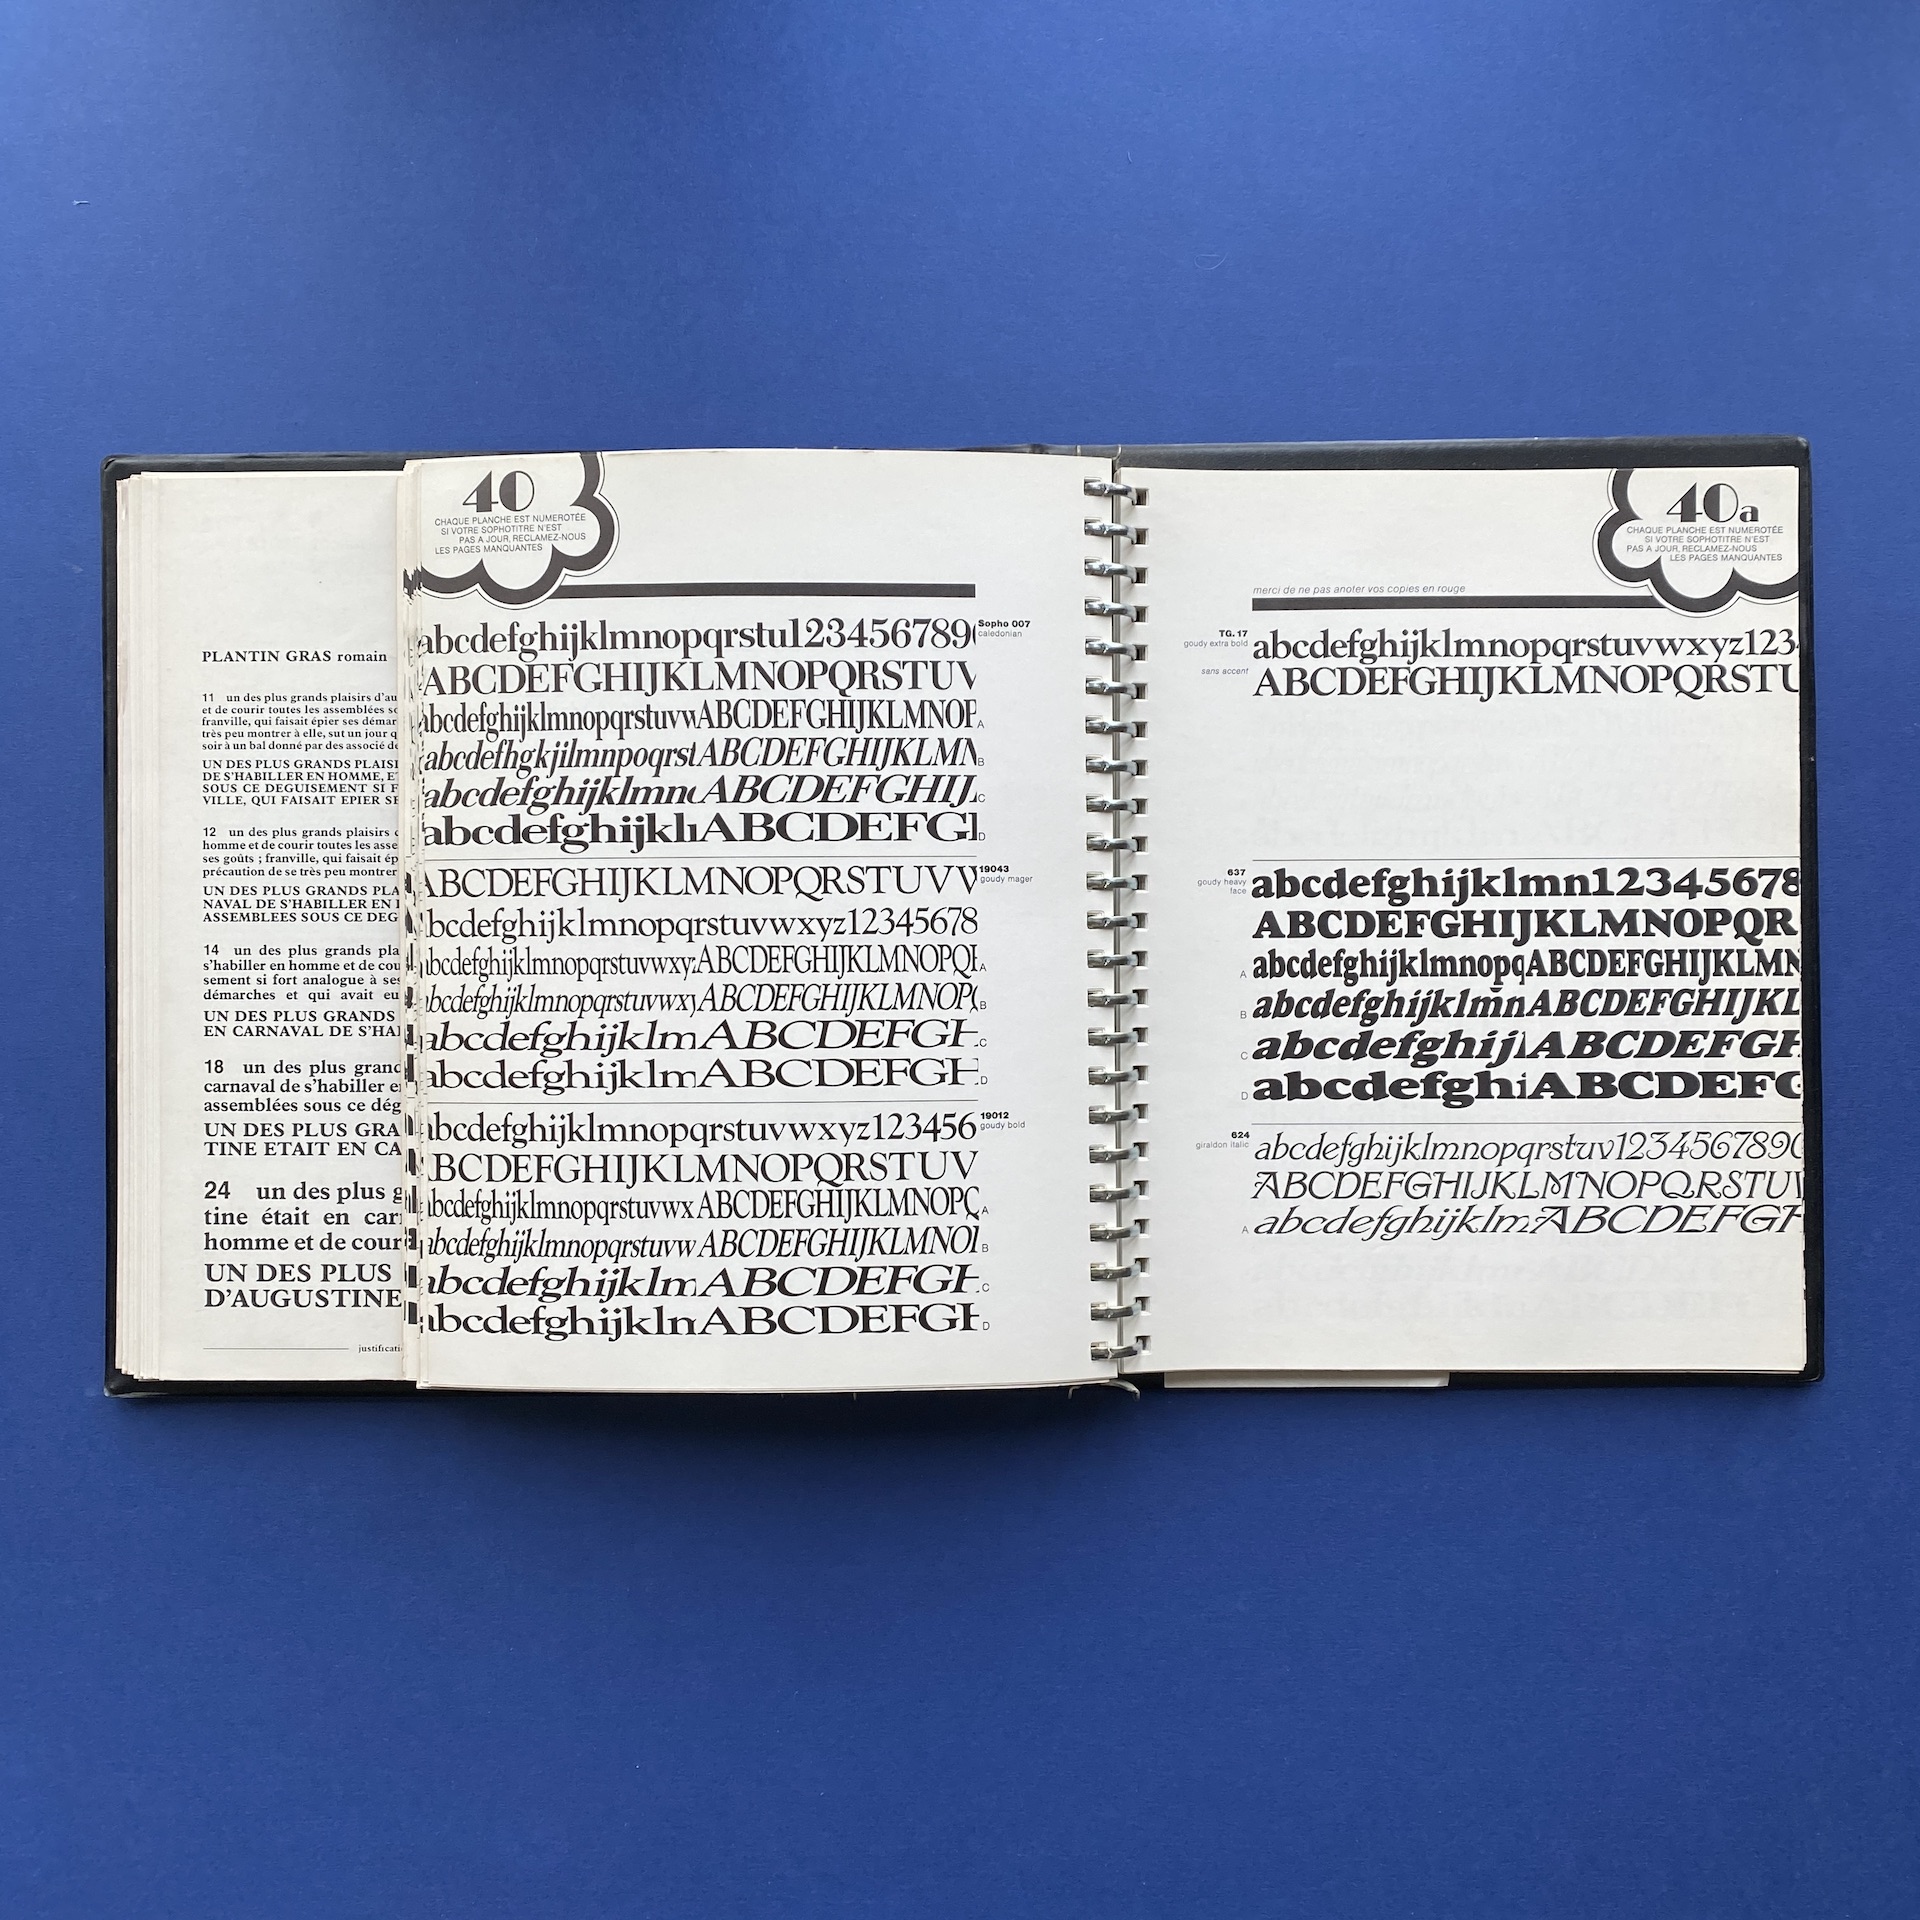 PLANTIN GRAS romain
11 un des plus grands plaisirs d'au
et de courir toutes les assemblées so
franville, qui faisait épier ses démar
très peu montrer à elle, sut un jour q
soir à un bal donné par des associé de
UN DES PLUS GRANDS PLAISI
DE S'HABILLER EN HOMME, ET
SOUS CE DEGUISEMENT SI F
VILLE, QUI FAISAIT EPIER SE
12 un des plus grands plaisirs d
homme et de courir toutes les asse
ses goûts ; franville, qui faisait ép
précaution de se très peu montrer
UN DES PLUS GRANDS PLA
NAVAL DE S'HABILLER EN
ASSEMBLEES SOUS CE DEG
14 un des plus grands pla
s'habiller en homme et de cou
sement si fort analogue à ses
démarches et qui avait eu
UN DES PLUS GRANDS
EN CARNAVAL DE S'HA
18 un des plus grand
carnaval de s'habiller e
assemblées sous ce dég
UN DES PLUS GRA
TINE ETAIT EN CA
24 un des plus g
tine était en car
homme et de cour
UN DES PLUS
D'AUGUSTINE
justificati
40
CHAQUE PLANCHE EST NUMEROTÉE
SI VOTRE SOPHOTITRE N'EST
PAS A JOUR, RECLAMEZ-NOUS
LES PAGES MANQUANTES
abcdefghijklmnopqrstu123456789 Sopho 007
caledonian
ABCDEFGHIJKLMNOPQRSTUV
abcdefghijklmnopqrstuvwABCDEFGHIJKLMNOP A
abcdefhgkjilmnpoqrstABCDEFGHIJKLMN B
abcdefghijklmnABCDEFGHIJ C
abcdefghijklABCDEFG D
ABCDEFGHIJKLMNOPQRSTUVV 19043
goudy mager
bcdefghijklmnopqrstuvwxyz12345678
bcdefghijklmnopqrstuvwxyzABCDEFGHIJKLMNOPQ A
bcdefghijklmnopqrstuvwxyABCDEFGHIJKLMNOP B
abcdefghijklmABCDEFGH C
abcdefghijklmABCDEFGH D
bcdefghijklmnopqrstuvwxyz123456 19012
goudy bold
BCDEFGHIJKLMNOPQRSTUV
bcdefghijklmnopqrstuvwxABCDEFGHIJKLMNOPQ A
bcdefghijklmnopqrstuvwABCDEFGHIJKLMNO B
bcdefghijklmABCDEFGH C
bcdefghijklnABCDEFGH D
40a
CHAQUE PLANCHE EST NUMEROTÉE
SI VOTRE SOPHOTITRE N'EST
PAS A JOUR, RECLAMEZ-NOUS
LES PAGES MANQUANTES
merci de ne pas anoter vos copies en rouge
TG. 17
goudy extra bold abcdefghijklmnopqrstuvwxyz123
sans accent ABCDEFGHIJKLMNOPQRSTU
637
goudy heavy
face
abcdefghijklmn12345678
ABCDEFGHIJKLMNOPQR
A abcdefghijklmnopqABCDEFGHIJKLMN
B abcdefghijklmnABCDEFGHIJKL
C abcdefghijABCDEFGH
D abcdefghiABCDEFG
624
giraldon italic abcdefghijklmnopqrstuv1234567890
ABCDEFGHIJKLMNOPQRSTUV
A abcdefghijklmABCDEFGH